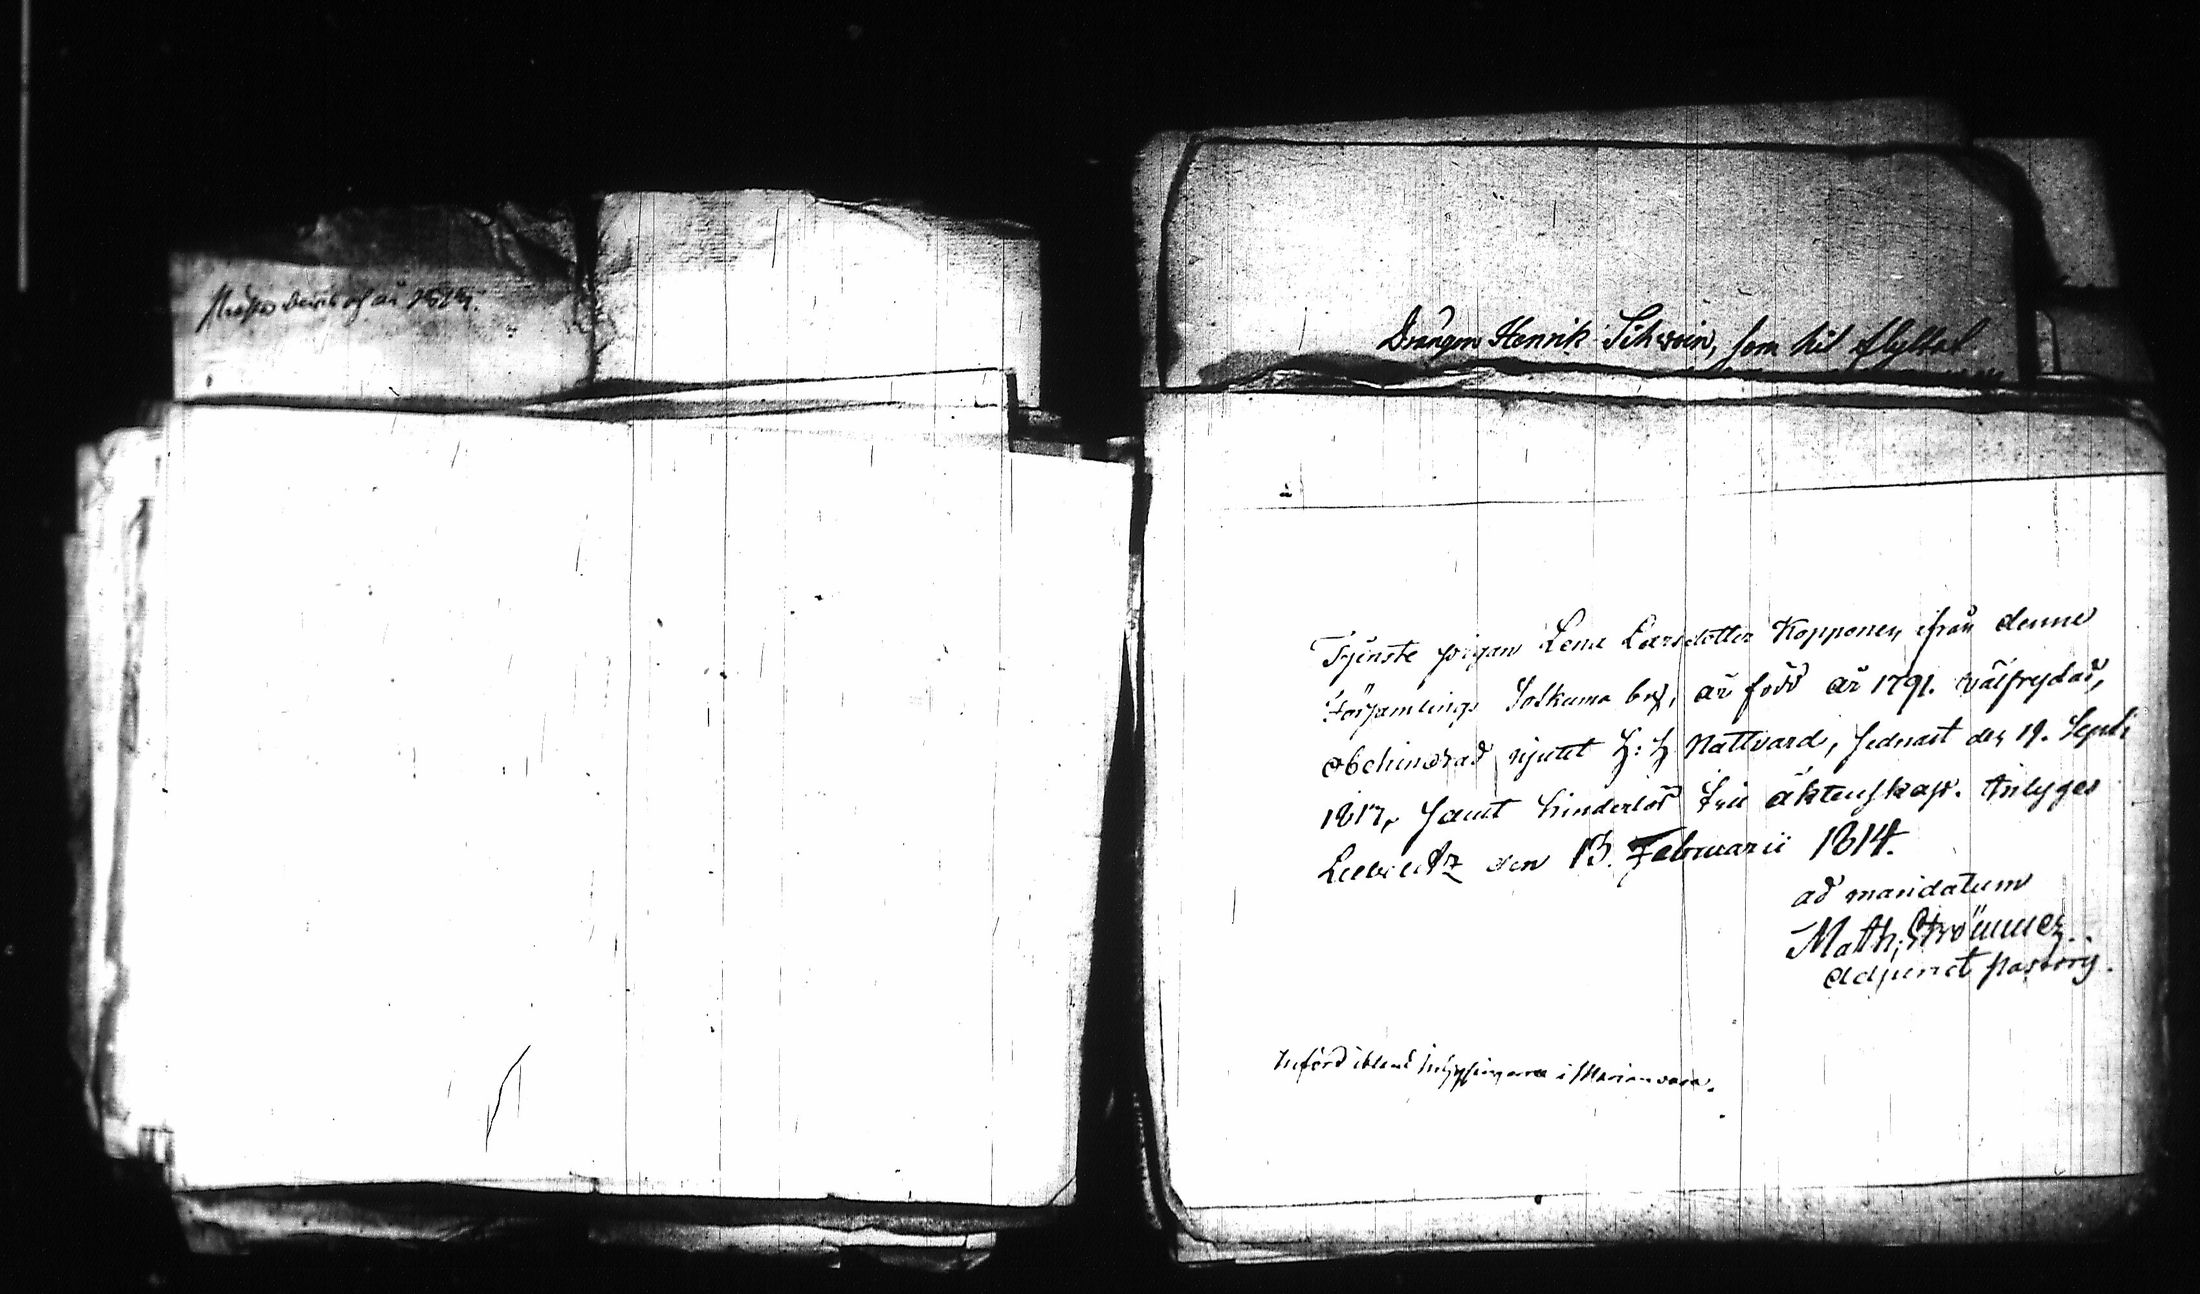 af år 1814.
Drängen Henrik Sihvoin, som hit flyttat
Tjenste pigan Lena Larsdotter Kopponen, ifrån denne
Församlings Solkuma by, är född år 1791. välfrejdad,
obehindrad njutit H: H Nattvard, sednast den 19. Septb
1813, samt hinderlös till äktenskap. Attesteras
den 13. Februarii 1814.
ad mandatum
Math. Strömmer.
Adjunct Pastoris.
Införd ibland inhysingarne i Marianvara.